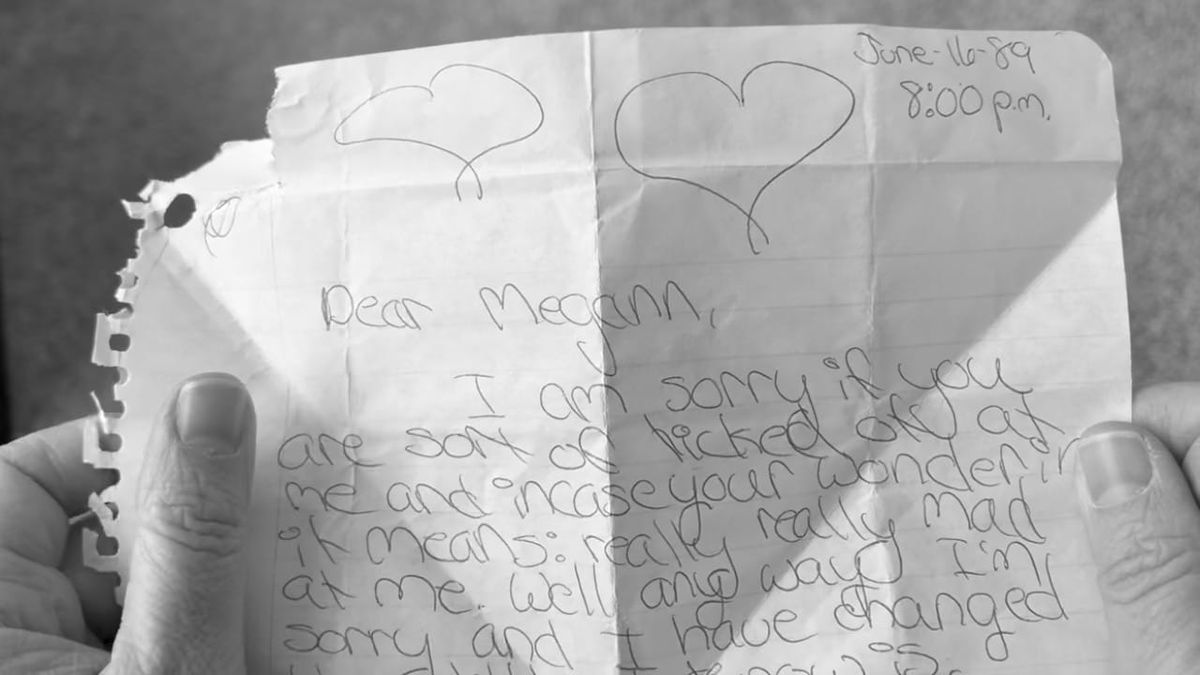 June-16-89
8:00 p.m.
Dear Megann,
I am sorry if you
are sort of ticked off at
me and incase your wondering
it means: really really mad
at me. Well any ways I'm
sorry and I have changed